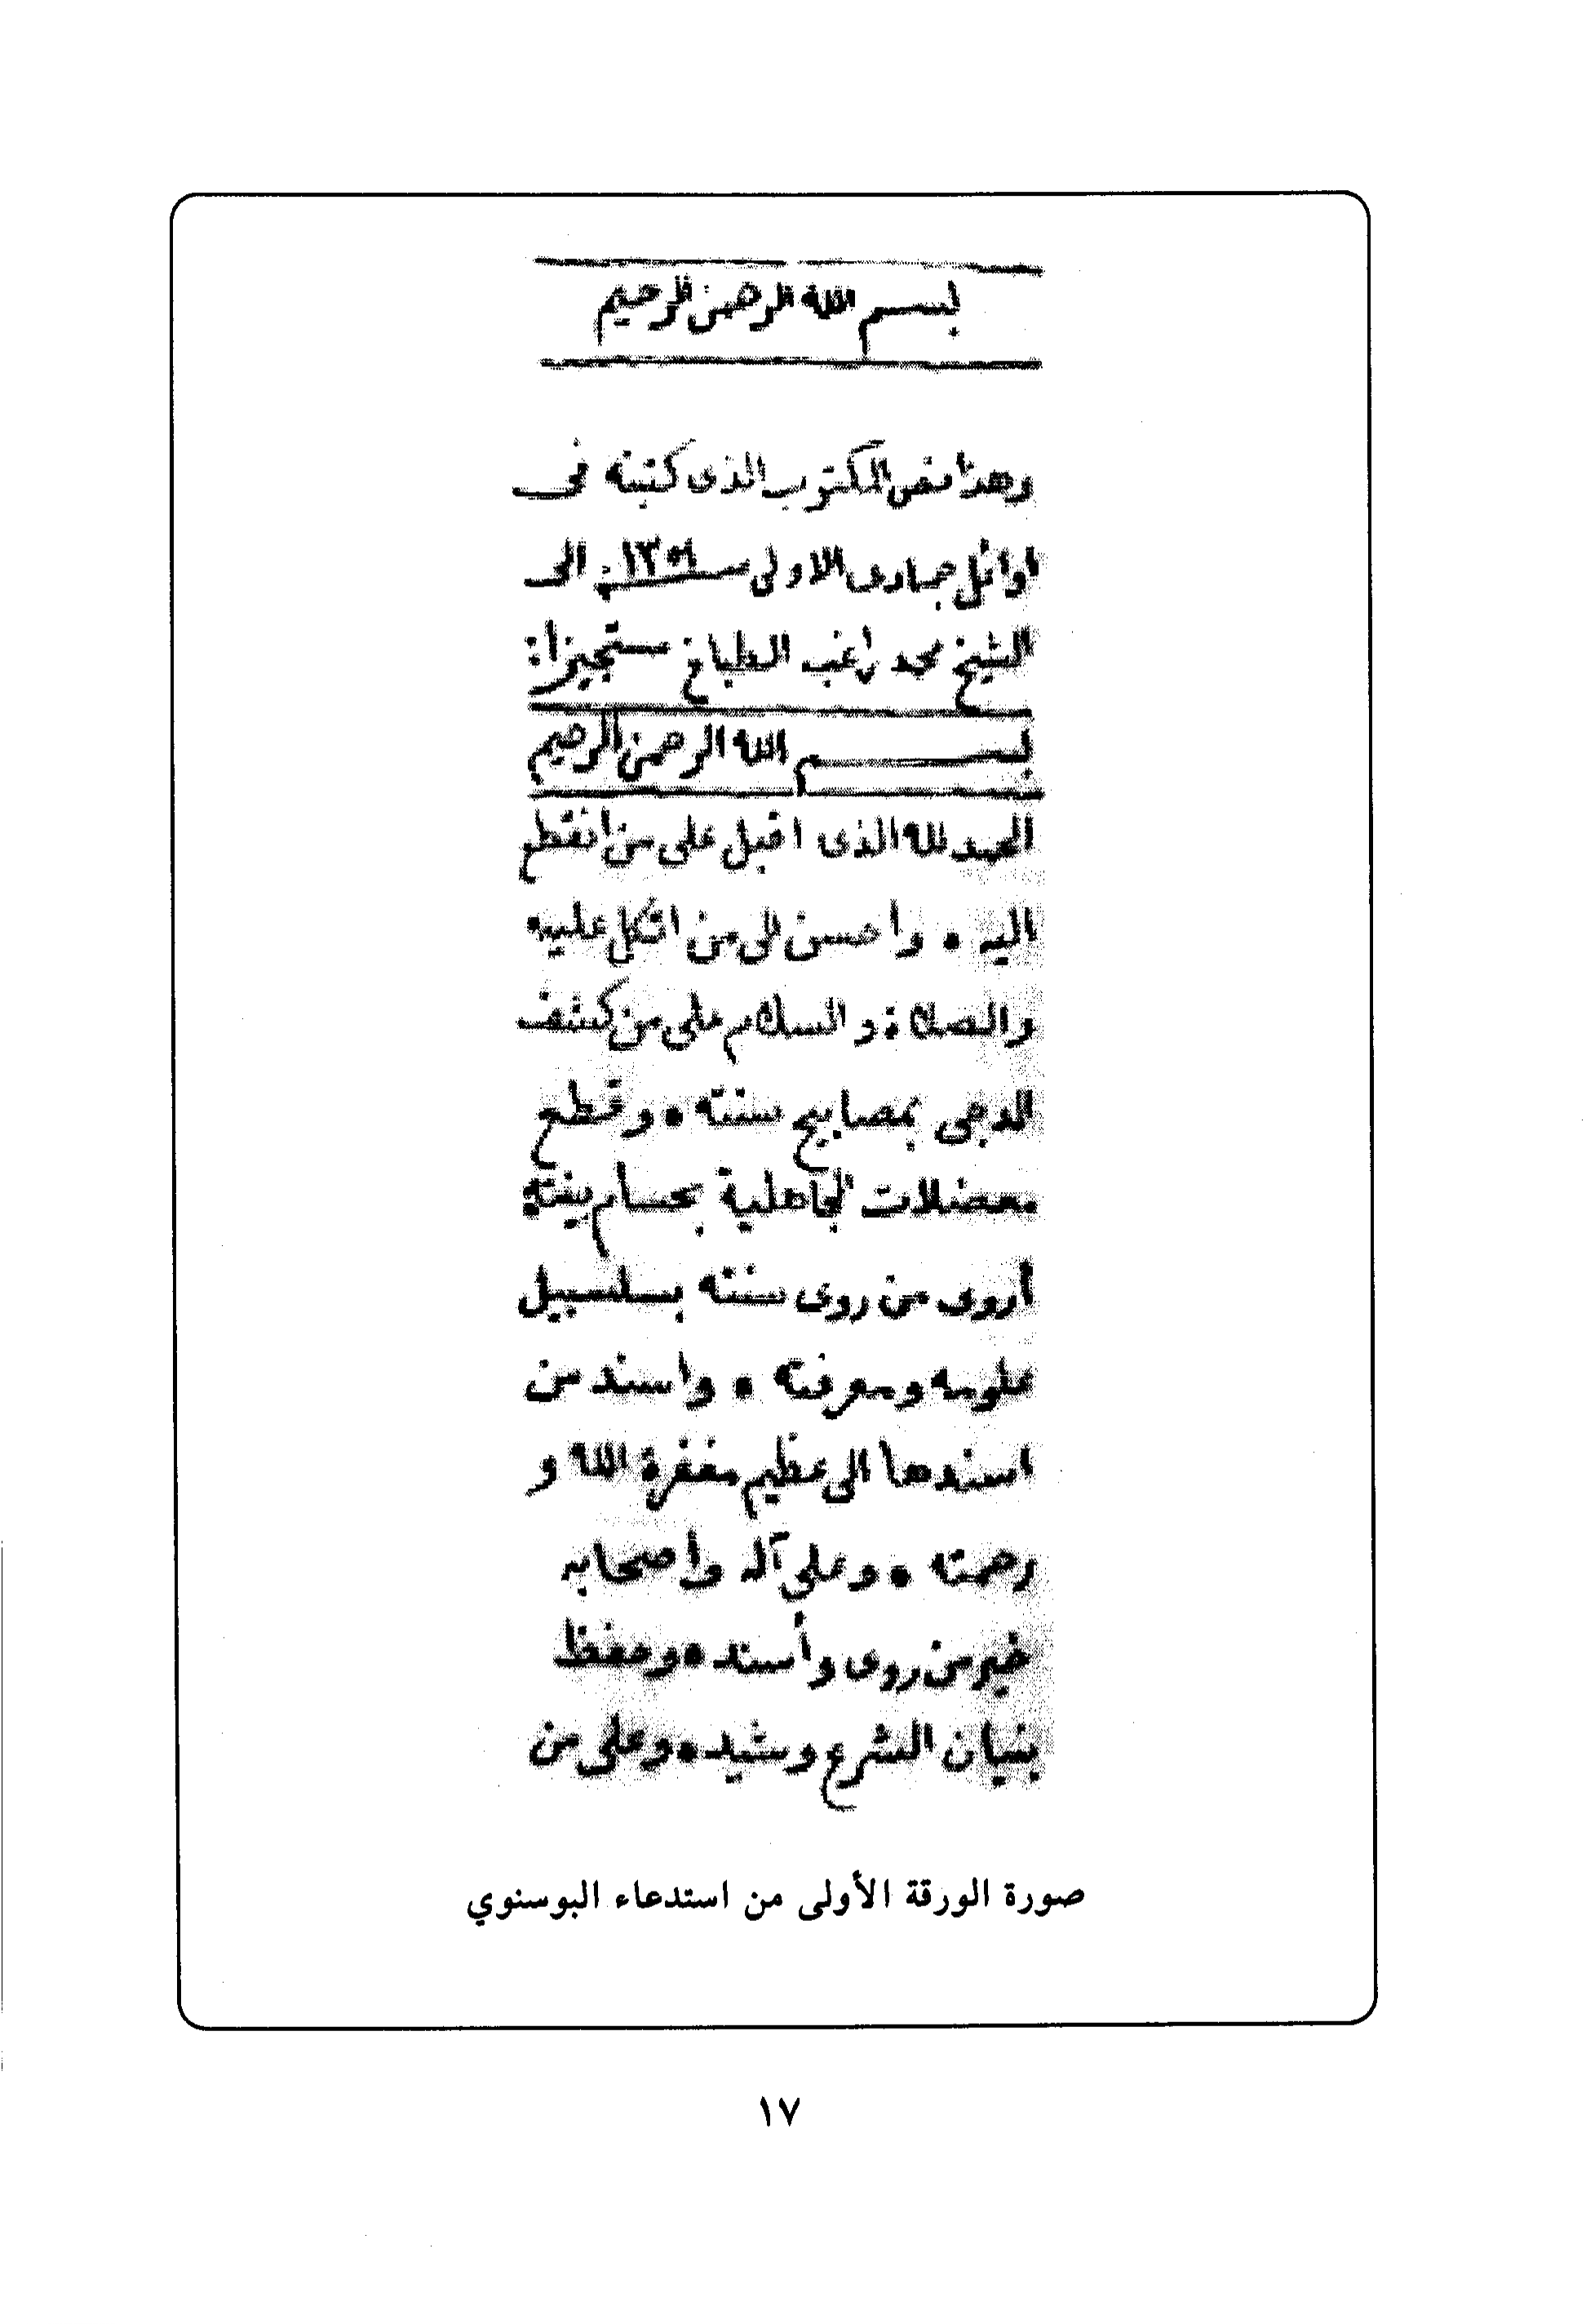 بسم الله الرحمن الرحيم
وهذا نص المكتوب الذى كتبته فى
اوائل جمادى الاولى سنة الى
الشيخ محمد راغب الطباخ مستجيزا:
بسم الله الرحمن الرحيم
الحمد لله الذى اقبل على من انقطع
اليه • وأحسن الى من اتكل عليه
والصلاة والسلام على من كشف
الدجى بمصابيح سنته • وقطع
معضلات الجاهلية بحسام بينته
أروى من روى سنته بسلسبيل
علومه ومعرفته • واسند من
اسندها الى عظيم مغفرة الله و
رحمته • وعلى آله وأصحابه
خير من روى وأسند • وحفظ
بنيان الشرع وشيد • وعلى من
صورة الورقة الأولى من استدعاء البوسنوي
١٧